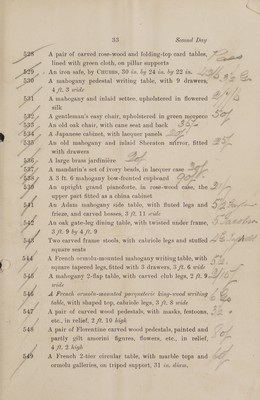 33 Second Day
528 A pair of carved rose-wood and folding-top card tables,
lined with green cloth, on pillar supports
529 An iron safe, by CHUBBS, 30 in. by 24 in. by 22 in.
530 A mahogany pedestal writing table, with 9 drawers,
4 ft. 3 wide
531 A mahogany and inlaid settee, upholstered in flowered
silk
532 A gentleman's easy chair, upholstered in green morocco
533 An old oak chair, with cane seat and back
534 A Japanese cabinet, with lacquer panels
535 An old mahogany and inlaid Sheraton mirror, fitted
with drawers
536 A large brass jardinière
537 A mandarin's set of ivory beads, in lacquer case
538 A 3 ft. 6 mahogany low-fronted cupboard
539 An upright grand pianoforte, in rose-wood case, the
upper part fitted as a china cabinet
541 An Adam mahogany side table, with fluted legs and
frieze, and carved bosses, 3 ft. 11 wide
542 An oak gate-leg dining table, with twisted under frame,
3 ft. 9 by 4 ft. 9
543 Two carved frame stools, with cabriole legs and stuffed
square seats
544 A French ormolu-mounted mahogany writing table, with
square tapered legs, fitted with 3 drawers, 3 ft. 6 wide
545 A mahogany 2-flap table, with carved club legs, 2 ft. 9
wide
546 A French ormolu-mounted parqueterie king-wood writing
table, with shaped top, cabriole legs, 3 ft. 8 wide
547 A pair of carved wood pedestals, with masks, festoons,
etc., in relief, 2 ft. 10 high
548 A pair of Florentine carved wood pedestals, painted and
partly gilt amorini figures, flowers, etc., in relief,
4 ft. 2 high
549 A French 2-tier circular table, with marble tops and
ormolu galleries, on tripod support, 31 in. diam.